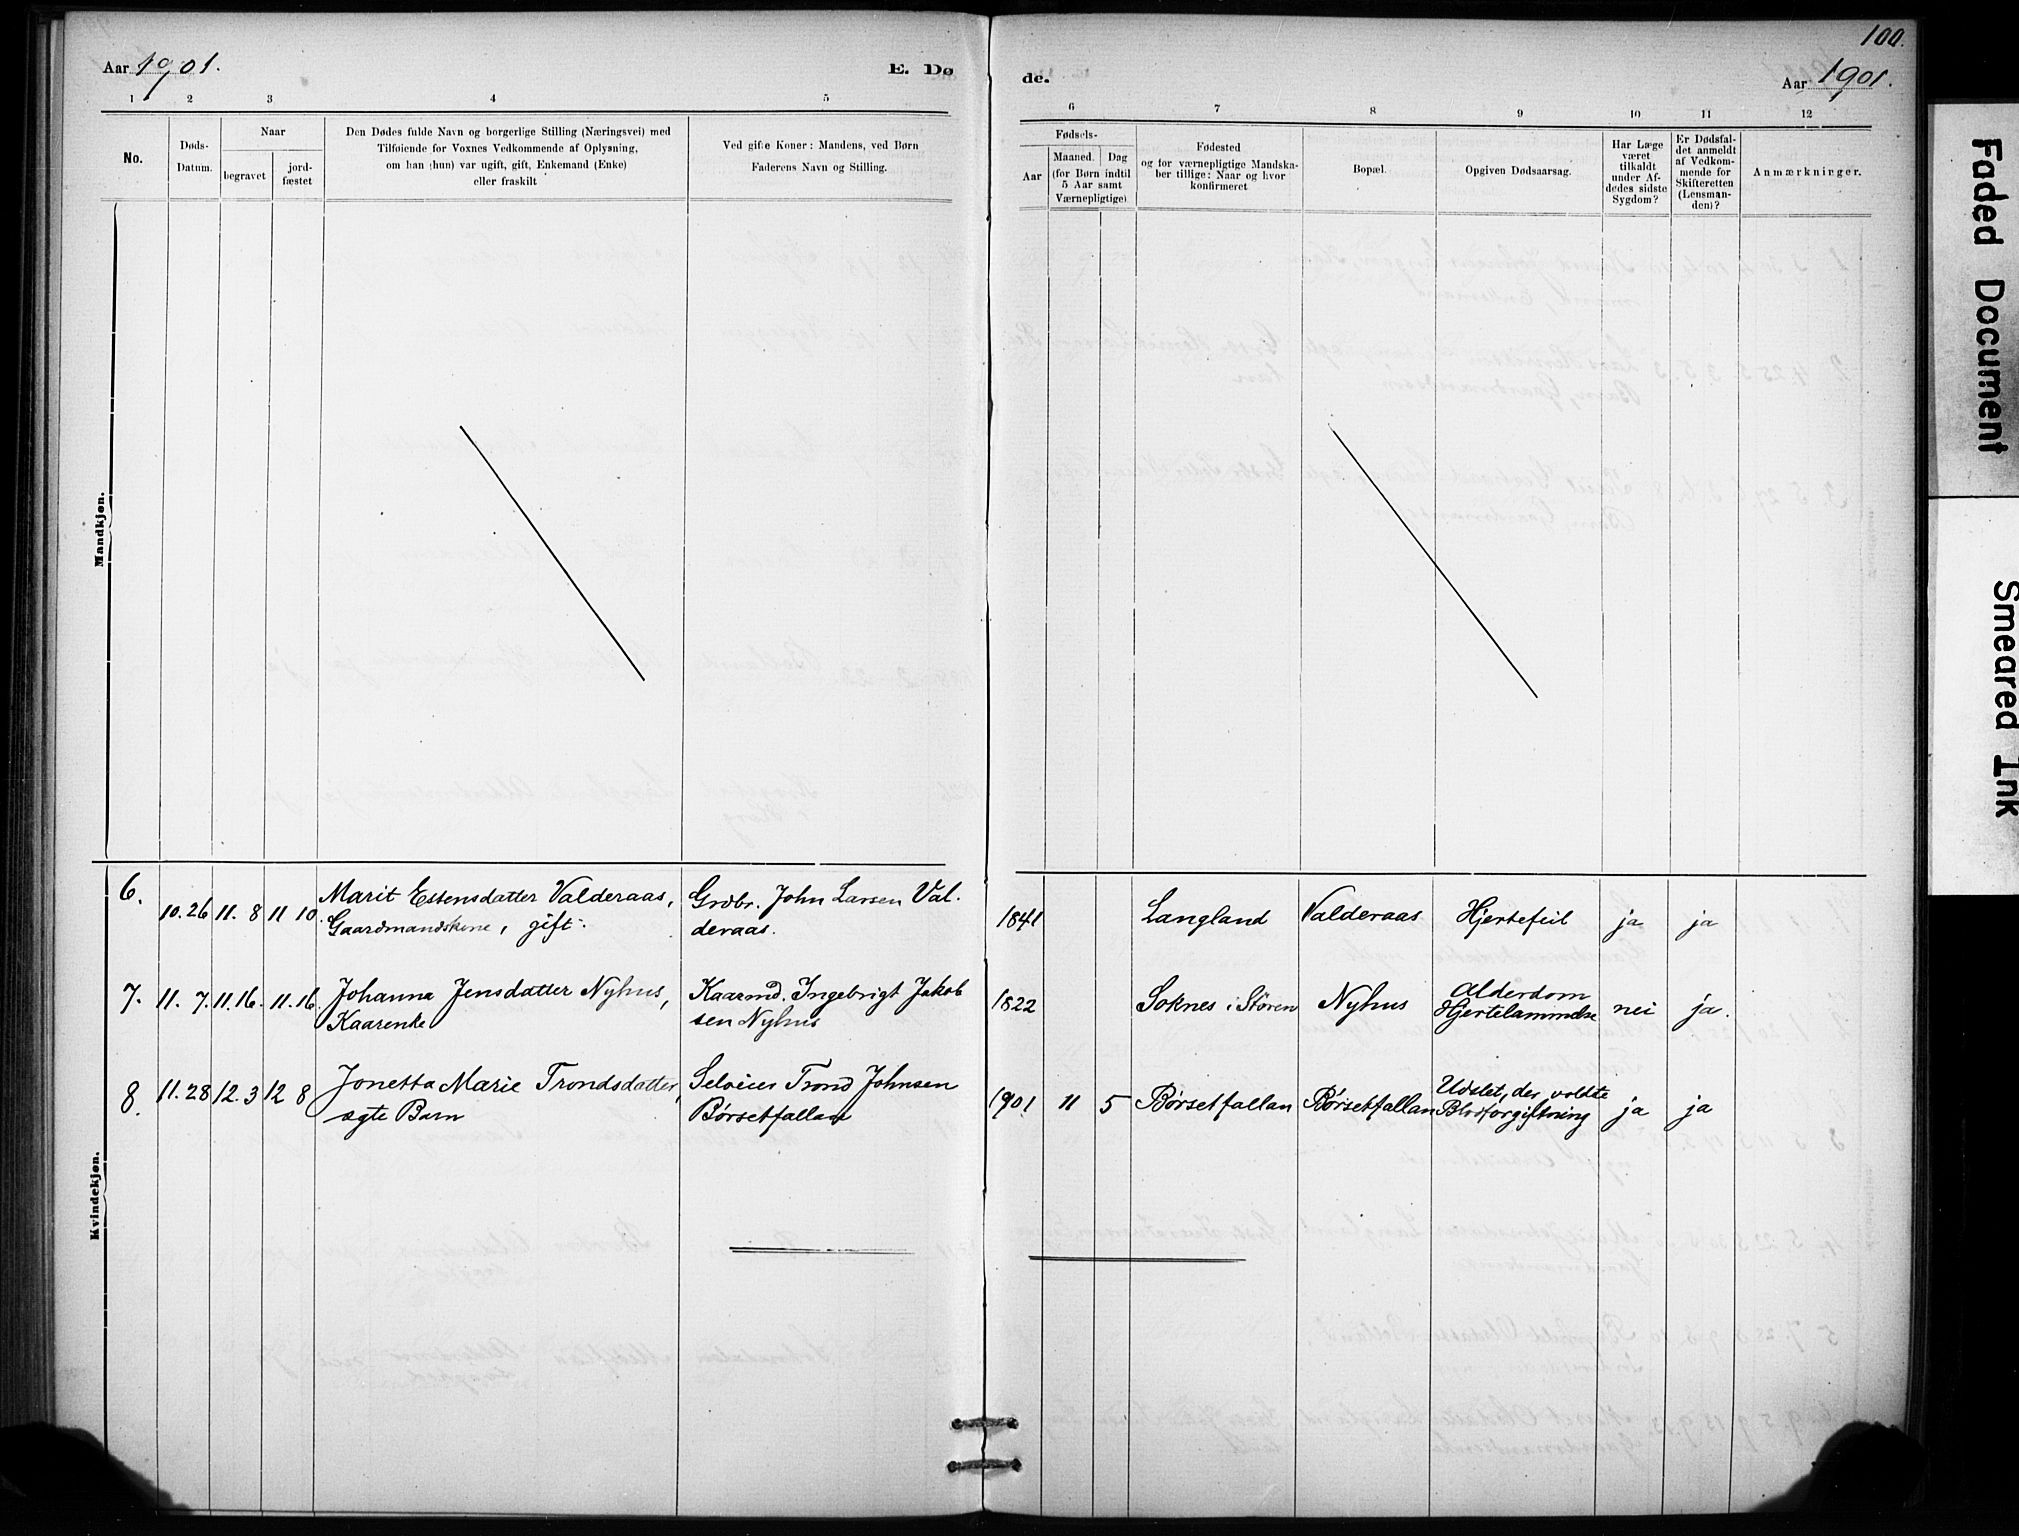 100.
Aar 1901.
E. Dø
de.
Aar 1901.
1 2 3 4 5
6 7 8 9 10 11 12
No.
Døds-
Datum.
Naar
begravet
jord-
fæstet
Den Dødes fulde Navn og borgerlige Stilling (Næringsvei) med
Tilføiende for Voxnes Vedkommende af Oplysning,
om han (hun) var ugift, gift, Enkemand (Enke)
eller fraskilt
Ved gifte Koner: Mandens, ved Børn
Faderens Navn og Stilling.
Fødsels-
Aar
Maaned. Dag
(for Børn indtil
5 Aar samt
Værnepligtige)
Fødested
og for værnepligtige Mandska-
ber tillige: Naar og hvor
konfirmeret
Bopæl.
Opgiven Dødsaarsag.
Har Læge
været
tilkaldt
under Af-
dødes sidste
Sygdom?
Er Dødsfal-
det anmeldt
af Vedkom-
mende for
Skifteretten
(Lensman-
den)?
Anmærkninger.
Mandkjøn.
Kvindekjøn.
6. 10. 26 11. 8 11 10. Marit Estensdatter Valderaas, Grdbr. John Larsen Val. 1841 Langland Valderaas Hjertefeil ja ja
Gaardmandskone, gift. deraas.
7. 11. 7. 11. 16. 11. 16. Johanna Jensdatter Nyhus, Kaarmd. Ingebrigt Jakob 1822 Soknes i Støren Nyhus Alderdom nei ja.
Kaarenke sen Nyhus Hjertelammelse
8. 11. 28 12. 3 12 8 Jonetta Marie Trondsdatter, Selveier Trond Johnsen 1901 11 5 Børsetfallan Børsetfallan Udslet, der voldte ja ja
ægte Barn Børsetfallan Blodforgiftning
Faded Document
Smeared Ink